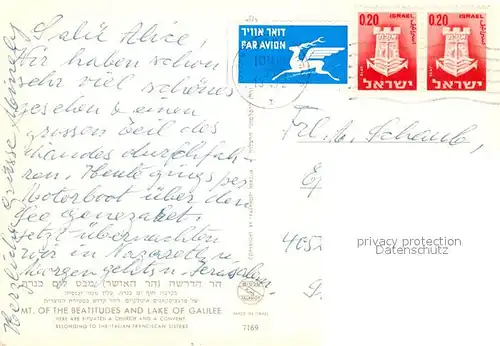 Salü Alice,
Wir haben schon
sehr viel schönes
gesehen & einen
grossen Teil des
Landes durchfah-
ren. Heute gings per
Motorboot über den
See genezaret.
Jetzt übernachten
wir in Nazareth u.
Morgen gehts n. Jerusalem.
Herzliche Grüsse
דואר אוויר
PAR AVION
0.20 ISRAEL
ישראל
0.20 ISRAEL
ישראל
Frl. A. Schaub,
4051
privacy protection
Datenschutz
הר הדרשה (הר האושר) מבט לים כנרת
MT. OF THE BEATITUDES AND LAKE OF GALILEE
HERE ARE SITUATED A CHURCH AND A CONVENT
BELONGING TO THE ITALIAN FRANCISCAN SISTERS
MADE IN ISRAEL
7169